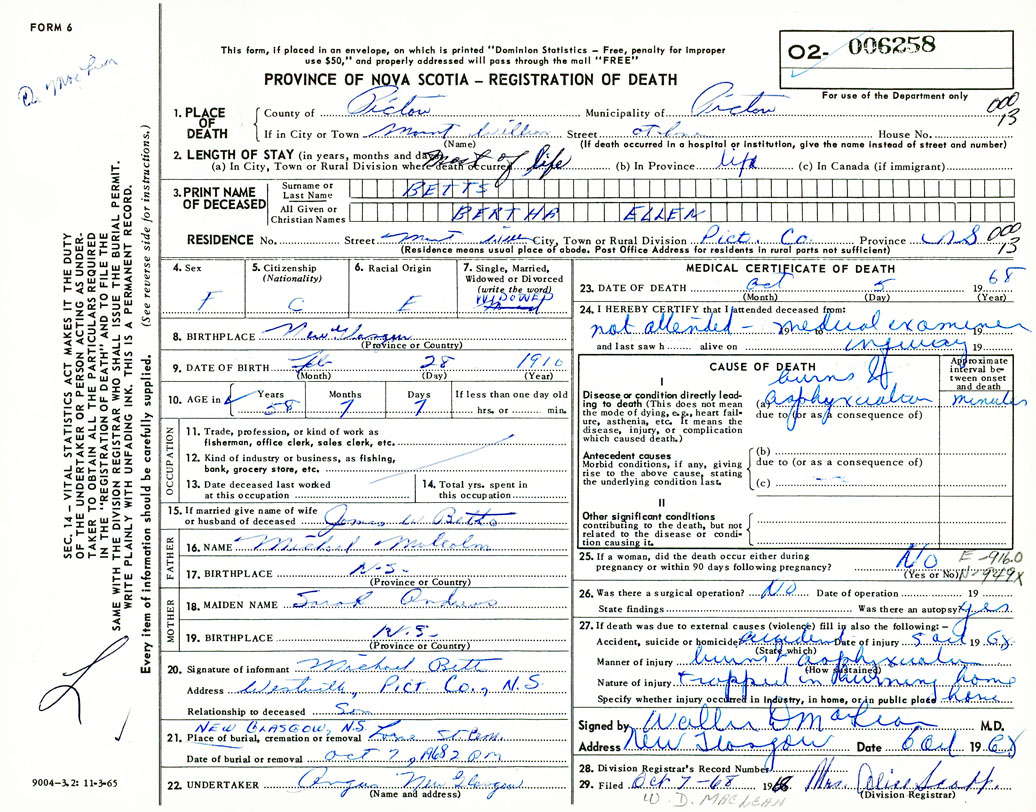 FORM 6
This form, if placed in an envelope, on which is printed "Dominion Statistics – Free, penalty for improper
use $50," and properly addressed will pass through the mail "FREE"
O2- 006258
For use of the Department only
PROVINCE OF NOVA SCOTIA – REGISTRATION OF DEATH
000
13
1. PLACE OF DEATH
County of Pictou Municipality of Pictou
If in City or Town Mount William Street at home House No.
(Name) (If death occurred in a hospital or institution, give the name instead of street and number)
2. LENGTH OF STAY (in years, months and days)
(a) In City, Town or Rural Division where death occurred most of life (b) In Province life (c) In Canada (if immigrant)
3. PRINT NAME OF DECEASED
Surname or Last Name BETTS
All Given or Christian Names BERTHA ELLEN
RESIDENCE No. Street City, Town or Rural Division Pict. Co. Province N.S. 000
13
(Residence means usual place of abode. Post Office Address for residents in rural parts not sufficient)
4. Sex F
5. Citizenship (Nationality) C
6. Racial Origin E
7. Single, Married, Widowed or Divorced (write the word) WIDOWED
8. BIRTHPLACE New Glasgow
(Province or Country)
9. DATE OF BIRTH Feb 28 1910
(Month) (Day) (Year)
10. AGE in Years 58 Months 7 Days 7 If less than one day old hrs. or min.
OCCUPATION
11. Trade, profession, or kind of work as
fisherman, office clerk, sales clerk, etc.
12. Kind of industry or business, as fishing,
bank, grocery store, etc.
13. Date deceased last worked
at this occupation
14. Total yrs. spent in
this occupation
15. If married give name of wife
or husband of deceased James W Betts
FATHER
16. NAME Michael Malcolm
17. BIRTHPLACE N.S.
(Province or Country)
MOTHER
18. MAIDEN NAME Sarah Andrews
19. BIRTHPLACE N.S.
(Province or Country)
20. Signature of informant Michael Betts
Address Westville, Pict Co., N.S.
Relationship to deceased Son
NEW GLASGOW, N.S.
21. Place of burial, cremation or removal
Date of burial or removal Oct 7, 1968 2 PM
22. UNDERTAKER Angus New Glasgow
(Name and address)
MEDICAL CERTIFICATE OF DEATH
23. DATE OF DEATH Oct 5 1968
(Month) (Day) (Year)
24. I HEREBY CERTIFY that I attended deceased from:
not attended – medical examiner 19
and last saw h alive on inquiry 19
CAUSE OF DEATH
Approximate interval between onset and death
I
Disease or condition directly leading
to death (This does not mean
the mode of dying, e.g., heart failure,
asthenia, etc. It means the
disease, injury, or complication
which caused death.)
burns &
(a) asphyxiation minutes
due to (or as a consequence of)
Antecedent causes
Morbid conditions, if any, giving
rise to the above cause, stating
the underlying condition last.
(b)
due to (or as a consequence of)
(c)
II
Other significant conditions
contributing to the death, but not
related to the disease or condition
causing it.
25. If a woman, did the death occur either during
pregnancy or within 90 days following pregnancy? No
(Yes or No)
E-916.0
N-949X
26. Was there a surgical operation? No Date of operation 19
State findings Was there an autopsy? yes
27. If death was due to external causes (violence) fill in also the following: –
Accident, suicide or homicide accident Date of injury 5 Oct 1968
(State which)
Manner of injury burns & asphyxiation
(How sustained)
Nature of injury trapped in burning home
Specify whether injury occurred in Industry, in home, or in public place home
Signed by M.D.
Address New Glasgow Date 6 Oct 1968
28. Division Registrar's Record Number
29. Filed Oct 7-68 1968 Mrs. Alice Scott
(Division Registrar)
W. D. MACLEAN
SEC. 14 – VITAL STATISTICS ACT MAKES IT THE DUTY
OF THE UNDERTAKER OR PERSON ACTING AS UNDERTAKER
TO OBTAIN ALL THE PARTICULARS REQUIRED
IN THE "REGISTRATION OF DEATH" AND TO FILE THE
SAME WITH THE DIVISION REGISTRAR WHO SHALL ISSUE THE BURIAL PERMIT.
WRITE PLAINLY WITH UNFADING INK. THIS IS A PERMANENT RECORD.
Every item of information should be carefully supplied. (See reverse side for instructions.)
9004-3.2: 11-3-65